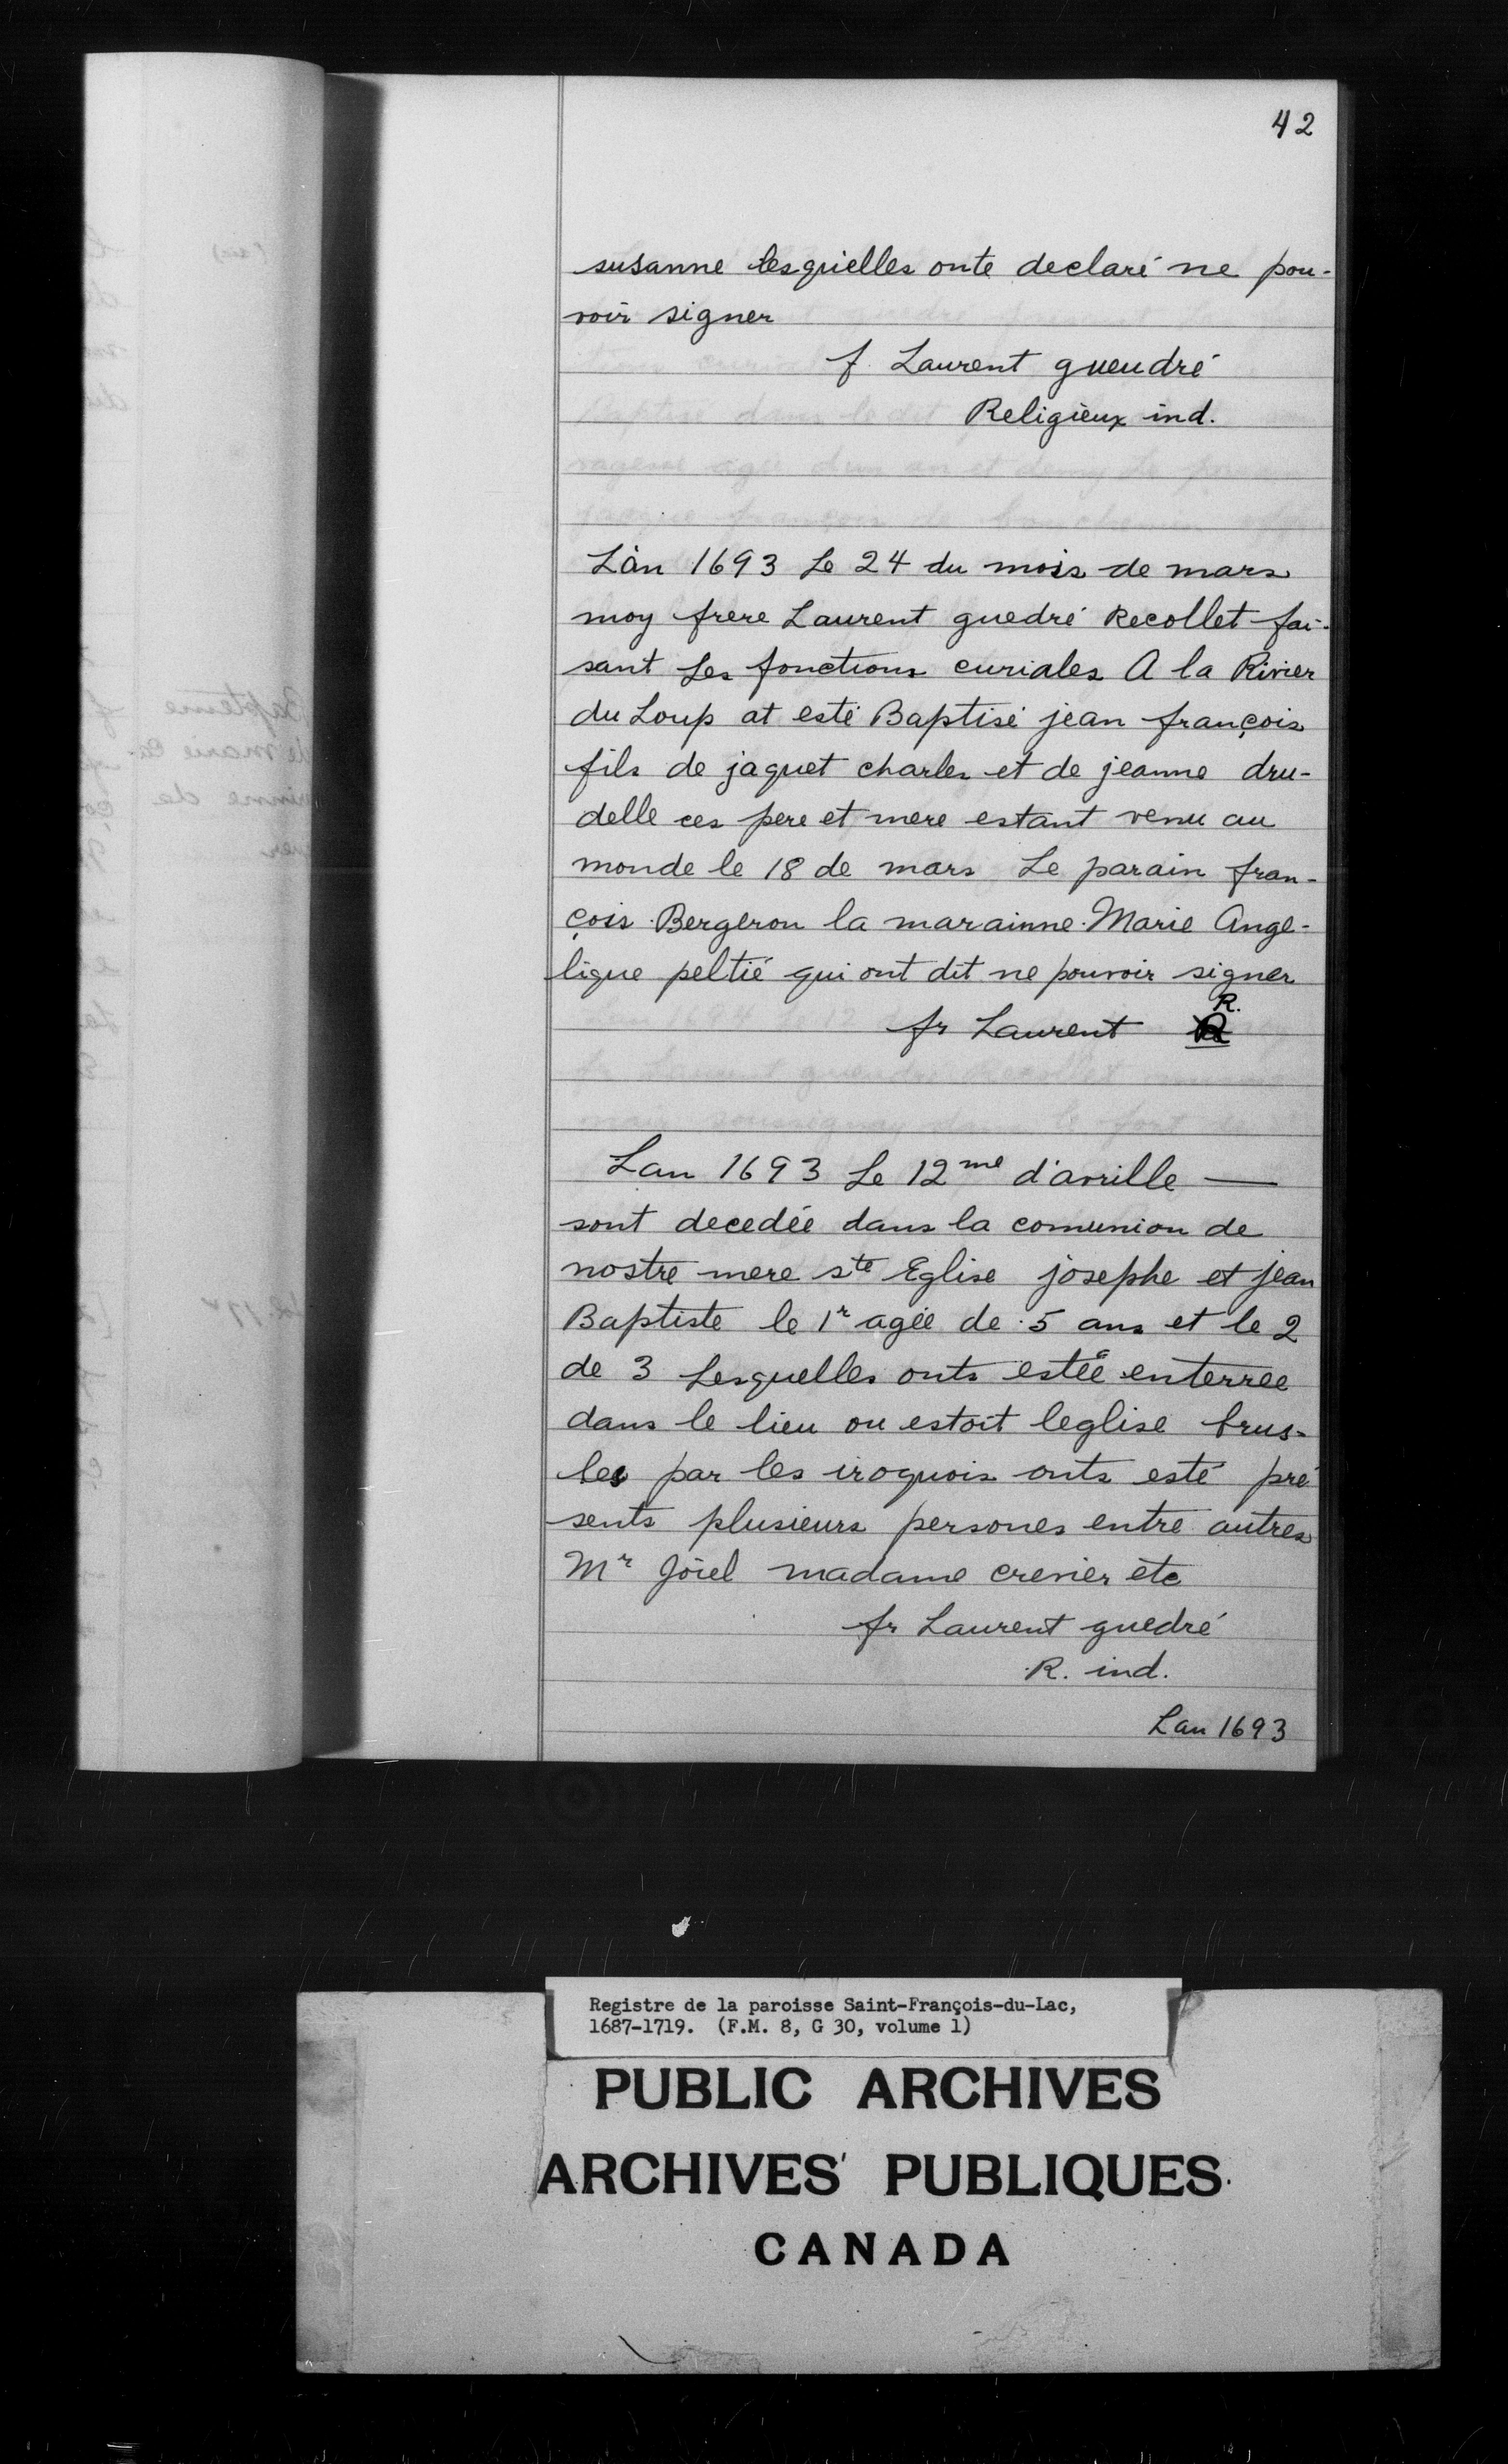 42
susanne lesquielles onte declaré ne pou-
voir signer
f. Laurent gueudré
Religieux ind.
L'an 1693 Le 24 du mois de mars
moy frere Laurent guedré Recollet fai-
sant Les fonctions curiales A la Rivier
du Loup at esté Baptisé jean françois
fils de jaquet charles et de jeanne dru-
delle ces pere et mere estant venu au
monde le 18 de mars Le parain fran-
çois Bergeron la marainne Marie Ange-
lique peltié qui ont dit ne pouvoir signer
fr Laurent R.
Lan 1693 Le 12me d'avrille —
sont decedée dans la comunion de
nostre mere ste Eglise josephe et jean
Baptiste le 1r agée de 5 ans et le 2
de 3 Lesquelles onts estée enterrée
dans le lieu ou estoit leglise brus-
les par les iroquois onts esté pré
sents plusieurs persones entre autres
Mr Joiel madame crevier etc
fr Laurent guedré
R. ind.
Lan 1693
Registre de la paroisse Saint-François-du-Lac,
1687-1719. (F.M. 8, G 30, volume 1)
PUBLIC ARCHIVES
ARCHIVES PUBLIQUES
CANADA